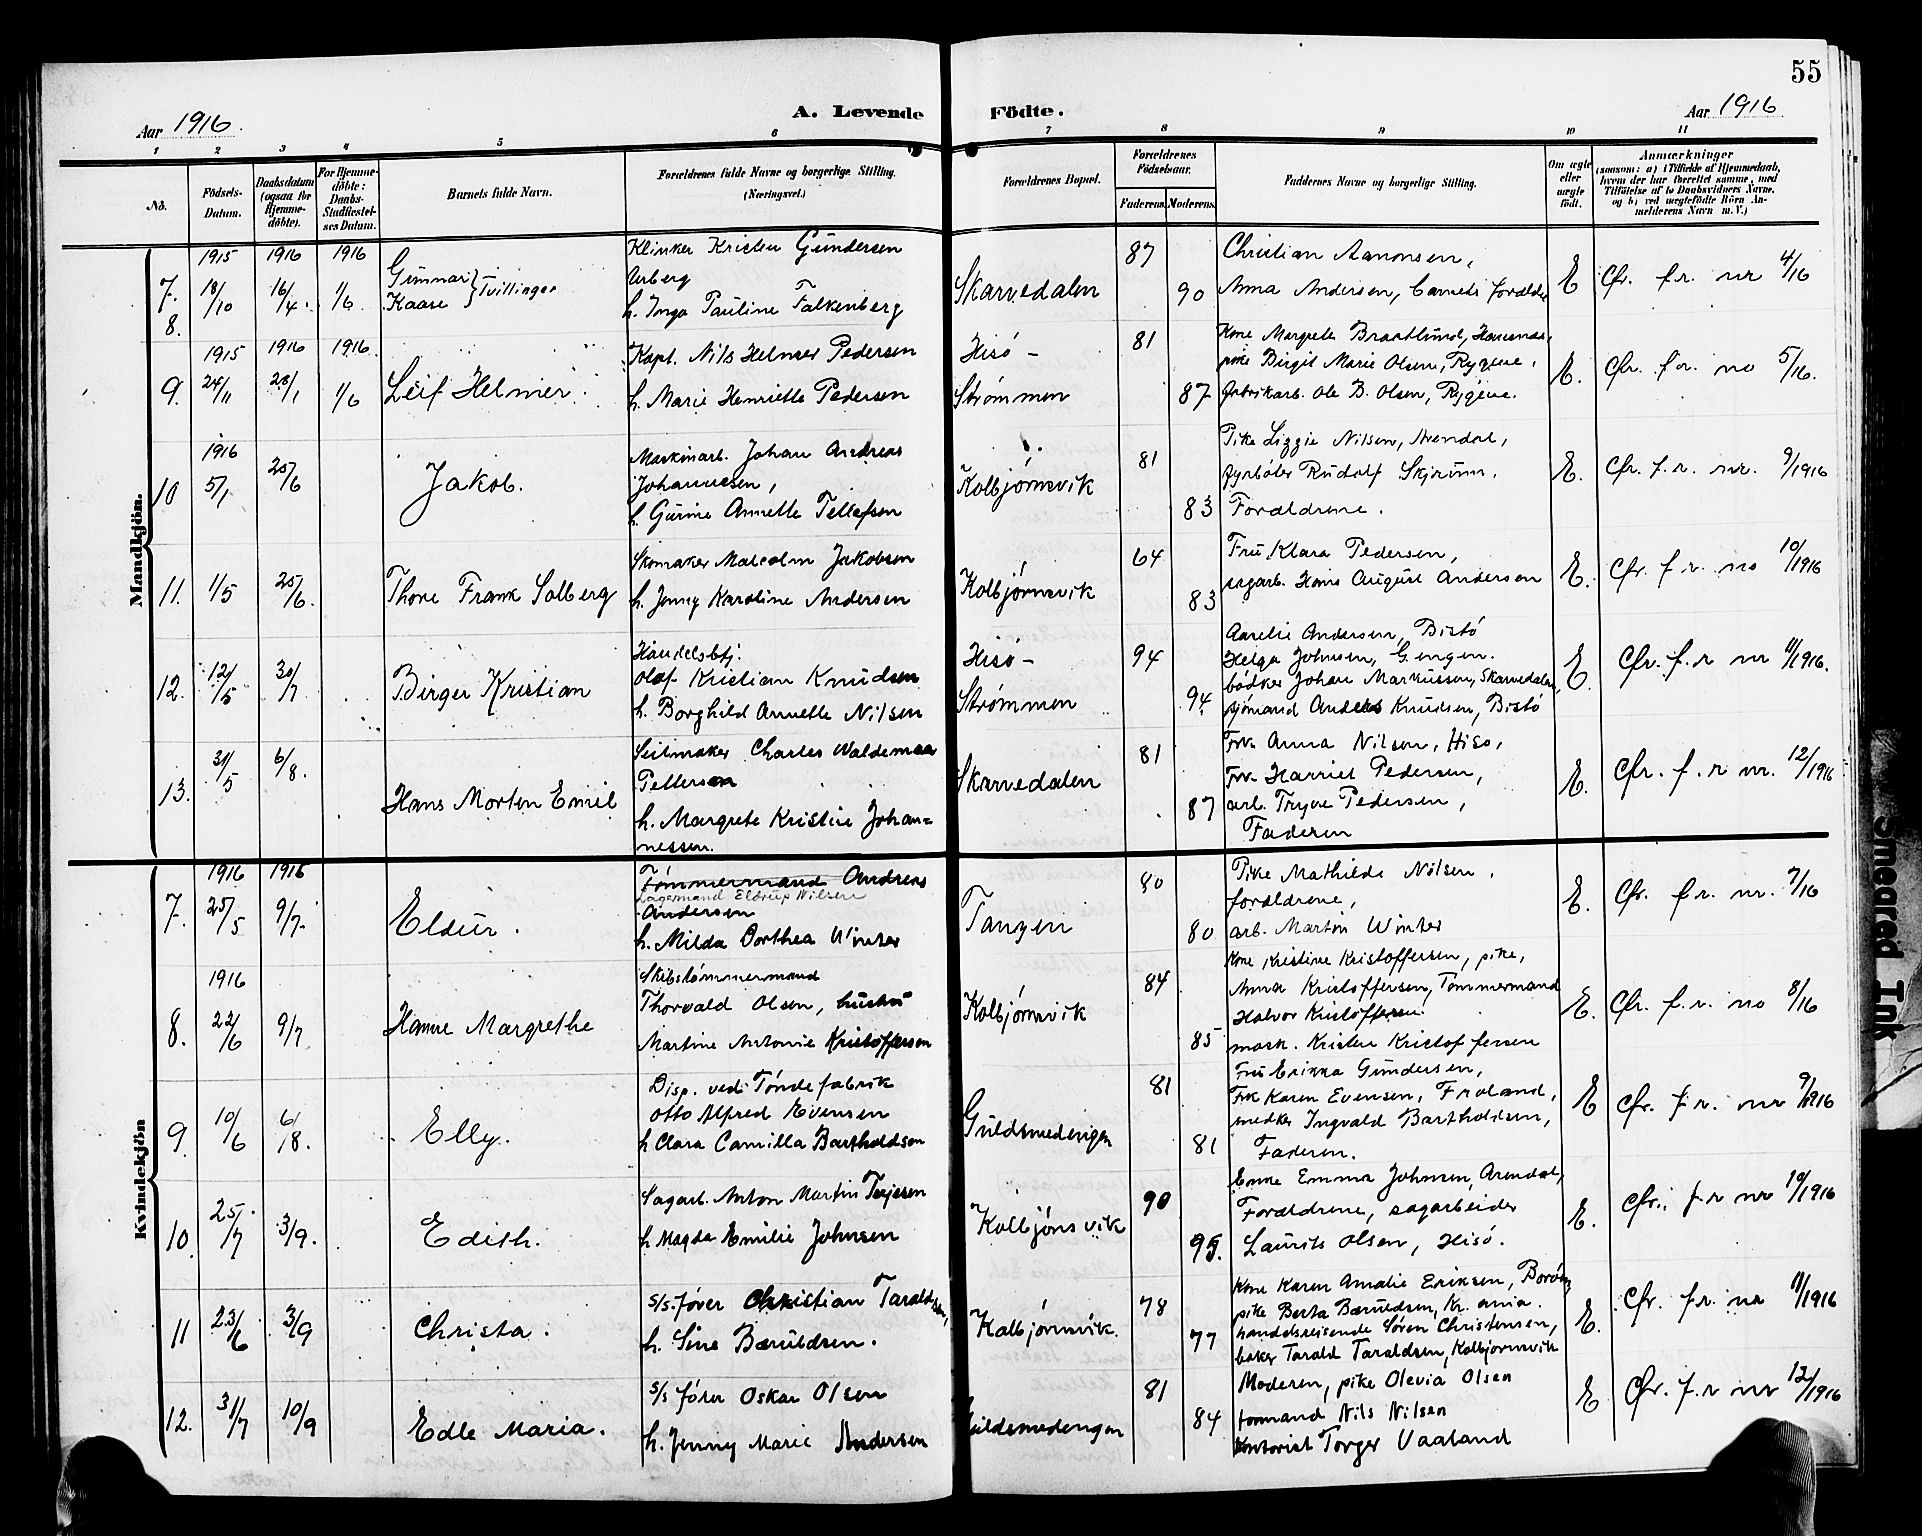 55
Aar 1916.
A. Levende
Födte.
Aar 1916
1 2 3 4 5 6 7 8 9 10 11
No.
Födsels-Datum.
Daabsdatum (ogsaa for Hjemmedöbte).
For Hjemmedöbte: Daabs-Stadfæstelses Datum.
Barnets fulde Navn.
Forældrenes fulde Navne og borgerlige Stilling.
(Næringsvei.)
Forældrenes Bopæl.
Forældrenes Födselsaar.
Faderens. Moderens.
Faddernes Navne og borgerlige Stilling.
Om ægte eller uægte födt.
Anmærkninger
(saasom: a) i Tilfælde af Hjemmedaab,
hvem der har forrettet samme, med
Tilföielse af to Daabsvidners Navne.
og b) ved uægtefödte Börn An-
melderens Navn m. V.)
Mandkjön.
7.
8.
1915 18/10
1916 16/4.
1916 1/6
Gunnar
Kaare } Tvillinger
Klinker Kristen Gundersen
Arberg
h. Inga Pauline Falkenberg
Skarvedalen
87
90
Christian Aanonsen,
Anna Andersen, barnets forældre
E
Cfr. f. r. nr 4/16
9.
1915 24/11
1916 23/1
1916. 1/6
Leif Helmer.
Kapt. Nils Helmer Pedersen
h. Marie Henriette Pedersen
Hisö-
Strømmen
81
87
Kone Margrete Braatlund,
pike Birgit Marie Olsen, Rygene,
fabrikarb. Ole B. Olsen, Rygene.
E.
Cfr. f. r. no 5/16.
10
1916 5/1
25/6
Jakob.
Maskinarb. Johan Andreas
Johannesen,
h. Gurine Annette Tellefsen
Kolbjørnsvik
81
83
Pike Lizzie Nilsen, Arendal,
fyrbøter Rudolf Skjrum.
Forældrene.
E.
Cfr. f. r. nr. 9/1916
11.
1/5
25/6.
Thore Frank Solberg
Skomaker Malcolm Jakobsen
h. Jenny Karoline Andersen
Kolbjørnsvik
64
83
Fru Klara Pedersen,
sagarb. Hans August Andersen
E.
Cfr. f. r. no 10/1916
12.
12/5
30/7
Birger Kristian
Handelsbtj.
Olaf Kristian Knudsen
h. Borghild Annette Nilsen
Hisö-
Strømmen
94
94.
Aarelie Andersen, Bistö
Helga Johnsen, Gjengen.
bødker Johan Markussen, Skarvedalen,
sjömand Anders Knudsen, Bistö
E.
Cfr. f. r nr 11/1916.
13.
31/5
6/8.
Hans Morten Emil
Seilmaker Charles Waldemar
Pettersen
h. Margrete Kristine Johan-
nessen.
Skarvedalen
81
87
Frk. Anna Nilsen, Hisö,
Frk. Harriet Pedersen,
arb. Trygve Pedersen,
Faderen
E.
Cfr. f. r nr. 12/1916
Kvindekjön
7.
1916 25/5
1916 9/7.
Eldur.
Tömmermand Andreas
Lagermand Eldrup Nilsen
Andersen
h. Milda Dorthea Winter
Tangen
80
80
Pike Mathilde Nilsen,
forældrene,
arb. Martin Winter
E.
Cfr. f. r. nr. 7/16
8.
1916 22/6
9/7
Hanne Margrethe
Skibstömmermand
Thorvald Olsen, hustru
Martine Antonie Kristoffersen
Kolbjørnsvik
84
85
Kone Kristine Kristoffersen, pike,
Anna Kristoffersen, Tømmermand
Halvor Kristoffersen.
mask. Kristen Kristoffersen
E.
Cfr. f. r. no 8/16
9.
10/6
6/8.
Elly.
Disp. ved Töndefabrik
Otto Alfred Evensen
h Clara Camilla Bartholdsen
Guldsmedengen
81
81
Fru Erikka Gundersen,
Frk Karen Evensen, Froland,
snedker Ingvald Bartholdsen,
Faderen.
E
Cfr. f. r. nr 9/1916
10.
25/7
3/9.
Edith.
Sagarb. Anton Martin Terjesen
h Magda Emilie Johnsen
Kolbjönsvik
90
95.
Enke Emma Johnsen, Arendal,
Forældrene, sagarbeider
Laurits Olsen, Hisö.
E.
Cfr. f. r nr 10/1916
11
23/6
3/9
Christa.
s/s. fører Christian Taraldsen,
h. Sine Bæruldsen.
Kolbjørnsvik.
78
77
Kone Karen Amalie Eriksen,
pike Berta Bæruldsen, Kr.ania.
handelsreisende Søren Christensen,
baker Tarald Taraldsen, Kolbjornsvik
E.
Cfr. f. r. nr 11/1916
12.
31/7
10/9
Edle Maria.
s/s fører Oskar Olsen
h. Jenny Marie Andersen
Guldsmedengen
81
84
Moderen, pike Olevia Olsen
formand Nils Nilsen
Kontorist Torger Vaaland
E
Cfr. f. r nr 12/1916
Smeared Ink